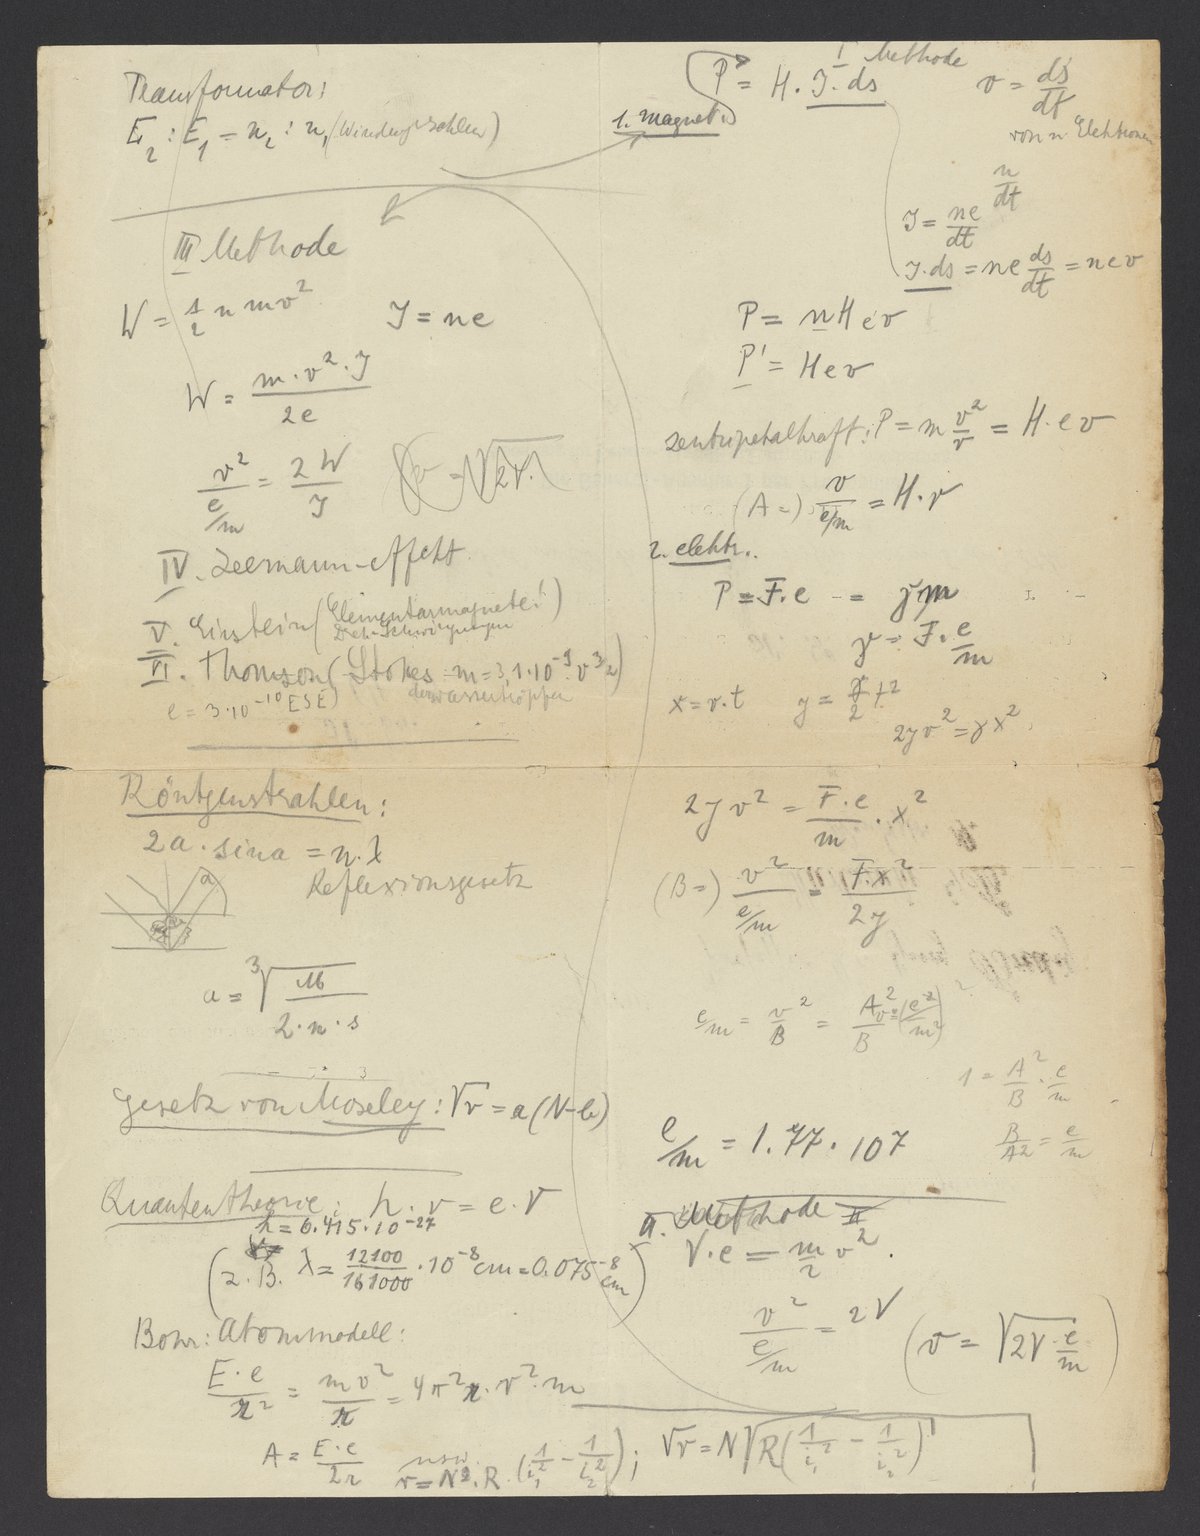 Transformator:
E₂ : E₁ = n₂ : n₁ (Windungszahlen)
III Methode
W = 1/2 n m v²
J = ne
W = m · v² · J / 2e
v² / e/m = 2W / J
v = √2V.
IV. Zeemann-effekt.
V. Einstein (Elementarmagnete!)
Dreh-Schwingungen
VI. Thomson (Stokes m = 3,1 · 10⁻⁹ · v³/₂)
e = 3 · 10⁻¹⁰ ESE)
der Wassertröpfen
Röntgenstrahlen:
2a · sin a = n · λ
Reflexionsgesetz
a
a = ³√ M / 2 · n · s
Gesetz von Moseley: √v = a (N-b)
Quantentheorie: h · v = e · V
h = 6.415 · 10⁻²⁷
(z. B. λ = 12100 / 161000 · 10⁻⁸ cm = 0.075⁻⁸ cm)
Bohr: Atommodell:
E · e / r² = m v² / r = 4π² r · v² · m
A = E · e / 2r
usw.
v = N² · R · (1/i₁² - 1/i₂²);
√v = N √R (1/i₁² - 1/i₂²)
I Methode
1. magnet.
P = H · J · ds
v = ds / dt
von n Elektronen
n / dt
J = ne / dt
J · ds = ne ds / dt = nev
P = n H e v
P' = H e v
Zentripetalkraft: P = m v² / r = H · e v
(A =) v / e/m = H · r
2. elektr..
P = F · e = γ m
γ = F · e/m
x = v · t
y = γ/2 t²
2yv² = γ x²
2 y v² = F · e / m · x²
(B =) v² / e/m = F · x² / 2y
e/m = v² / B = A² v² = (e²/m²) / B
1 = A² / B · e/m
B / A² = e/m
e/m = 1.77 · 10⁷
a. Methode II
V · e = m/2 v².
v² / e/m = 2V
(v = √2V · e/m)